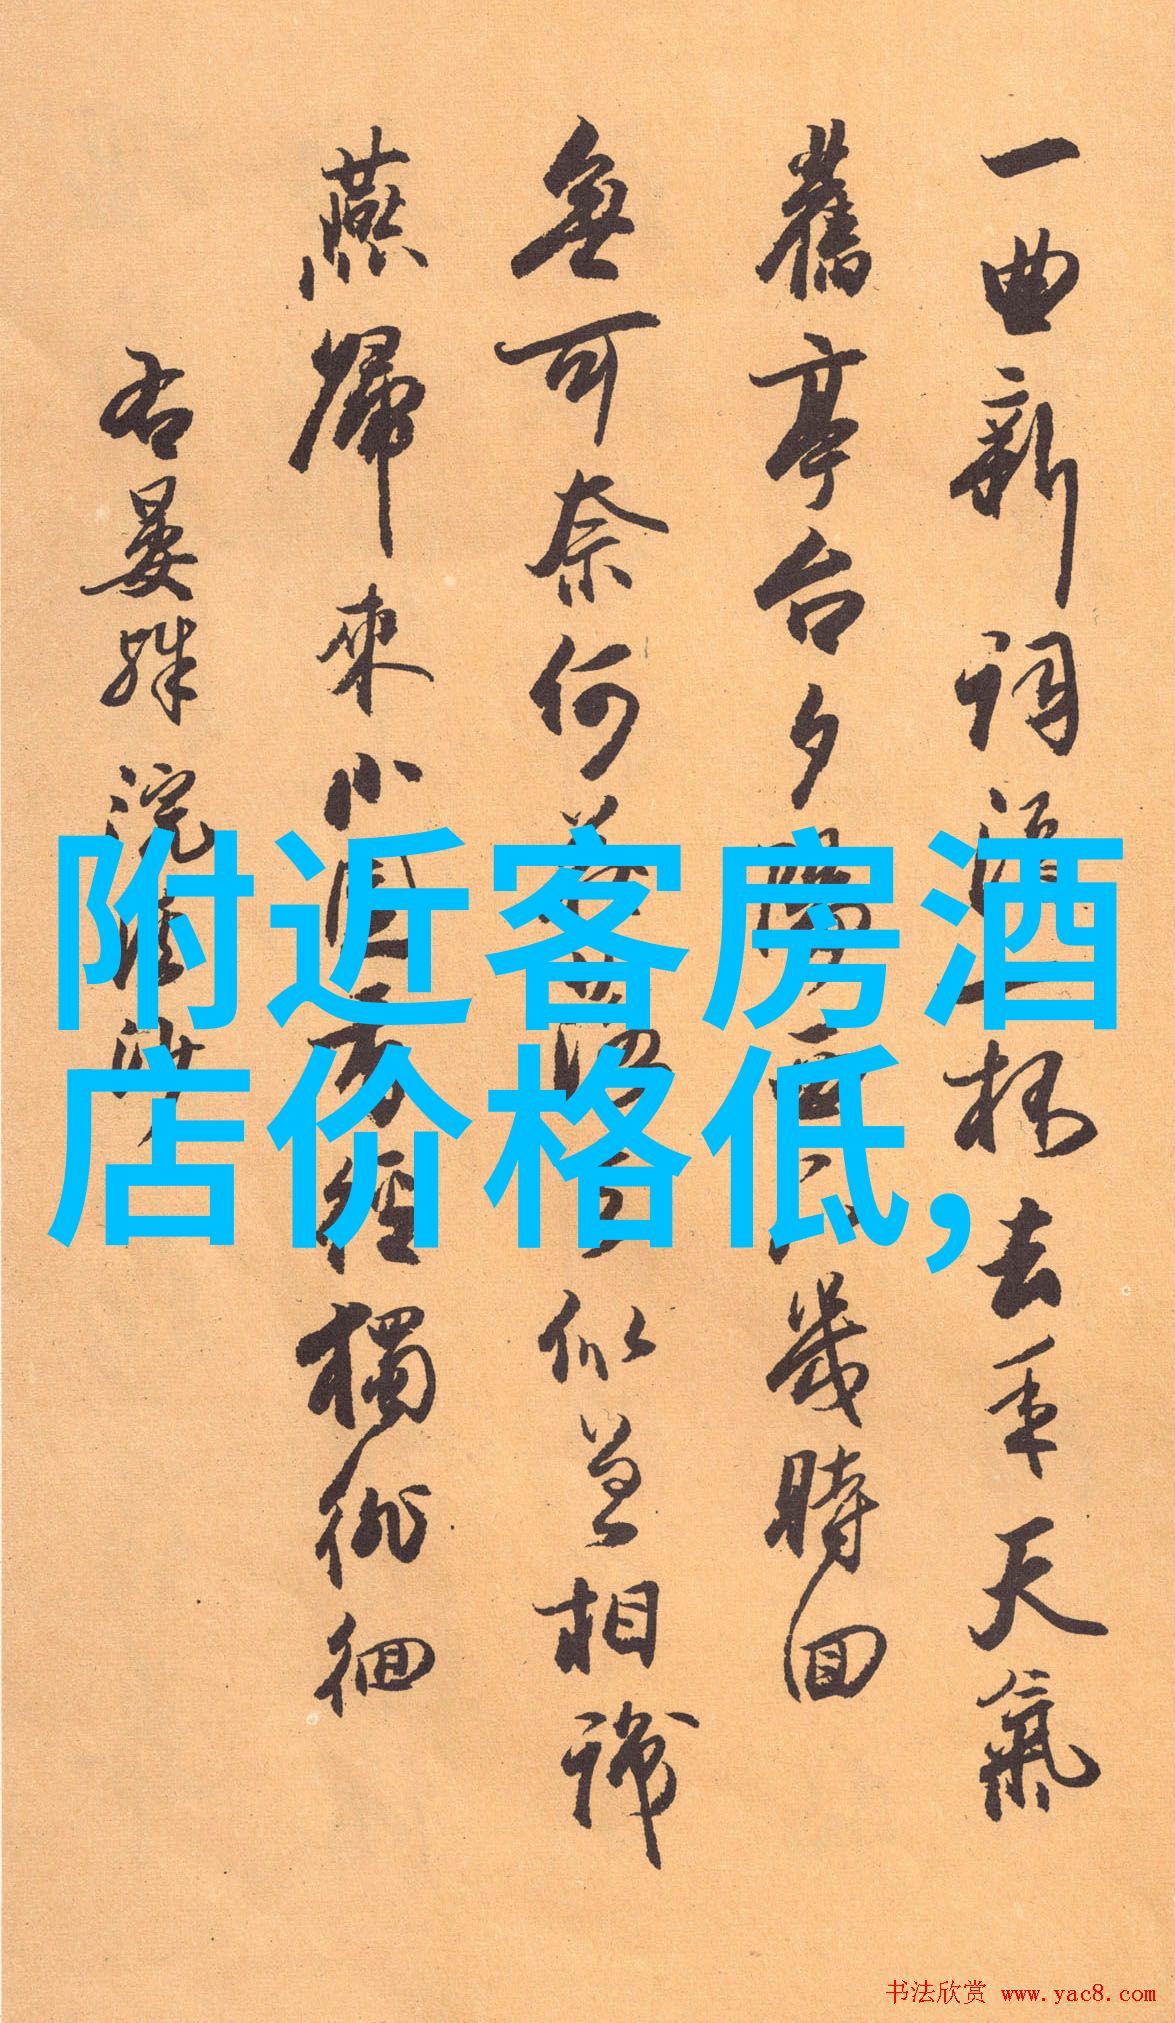 一曲新詞酒一杯去年天氣
舊亭台夕陽西下幾時回
無可奈何花落去似曾相識
燕歸來小園香徑獨徘徊
右晏殊浣溪沙
附近客房酒
店价格低,
书法欣赏 www.yac8.com